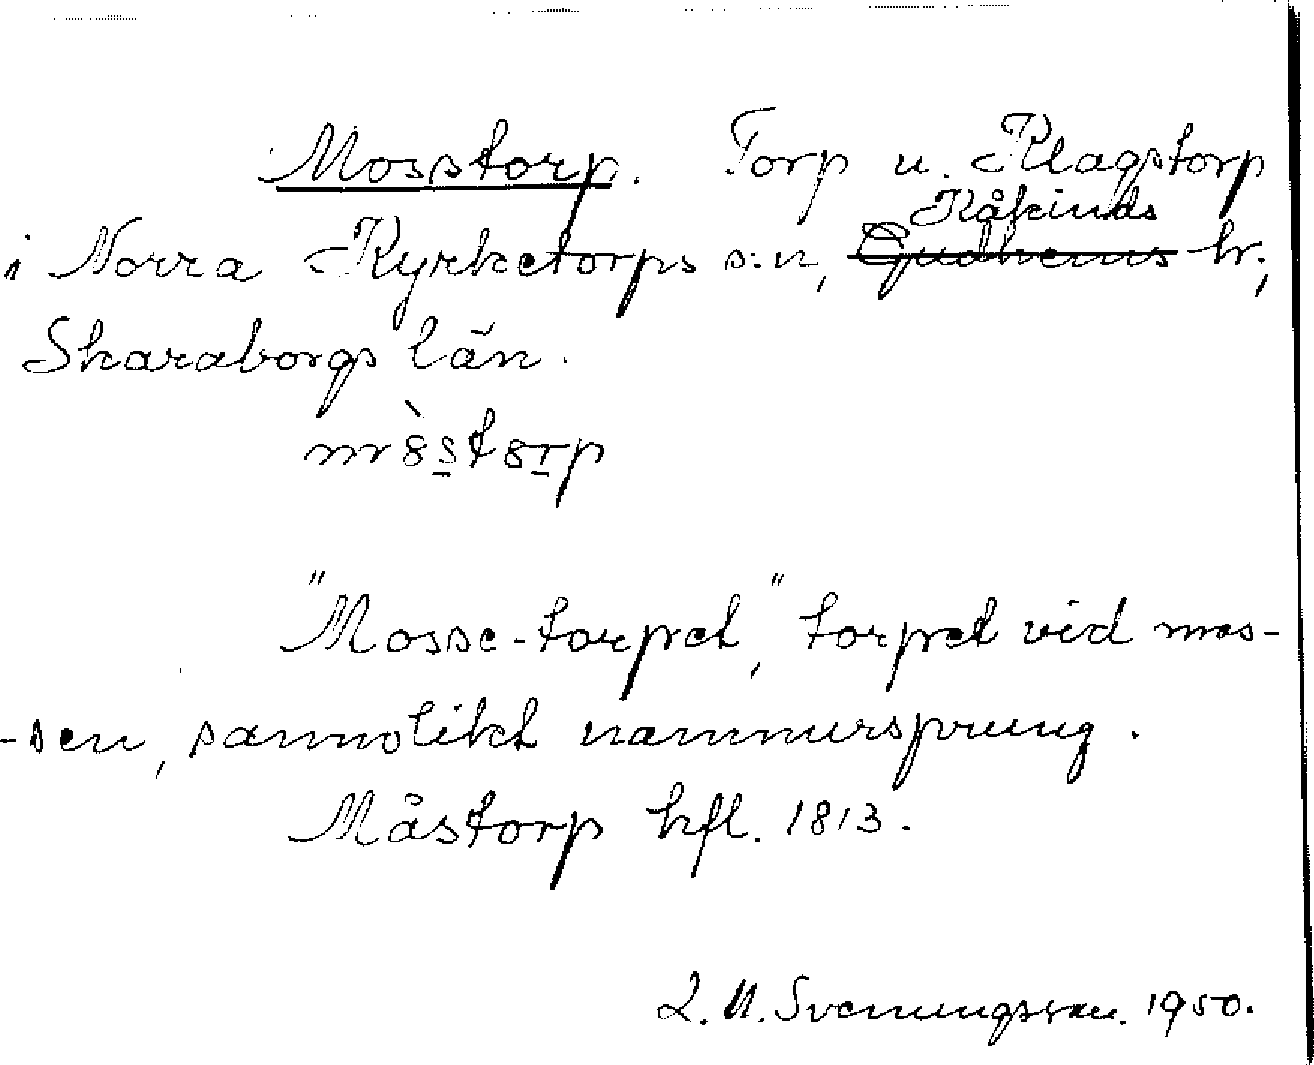 Mosstorp. Torp u. Klagstorp
i Norra Kyrketorps s:n, Kåkinds ~~Gudhems~~ hr.,
Skaraborgs län.
m8̀s̲t8r̲p
"Mosse-torpet," torpet vid mos-
-sen, sannolikt namnursprung.
Måstorp hfl. 1813.
L. M. Svenungsson. 1950.